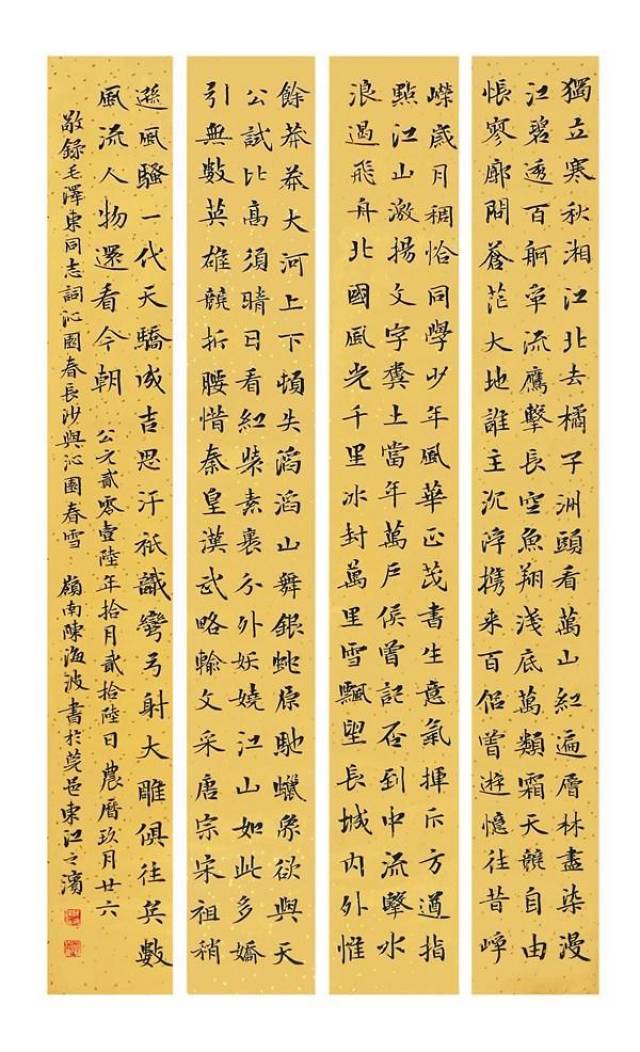 獨立寒秋湘江北去橘子洲頭看萬山紅遍層林盡染漫
江碧透百舸爭流鷹擊長空魚翔淺底萬類霜天競自由
悵寥廓問蒼茫大地誰主沉浮攜来百侶曾遊憶往昔崢
嶸歲月稠恰同學少年風華正茂書生意氣揮斥方遒指
點江山激揚文字糞土當年萬戶侯曾記否到中流擊水
浪遏飛舟北國風光千里冰封萬里雪飄望長城內外惟
餘莽莽大河上下頓失滔滔山舞銀蛇原馳蠟象欲與天
公試比高須晴日看紅裝素裹分外妖嬈江山如此多嬌
引無數英雄競折腰惜秦皇漢武略輸文采唐宗宋祖稍
遜風騷一代天驕成吉思汗祇識彎弓射大雕俱往矣數
風流人物還看今朝 公元貳零壹陸年拾月貳拾陸日農曆玖月廿六
敬錄毛澤東同志詞沁園春長沙與沁園春雪 嶺南陳海波書於莞邑東江之濱